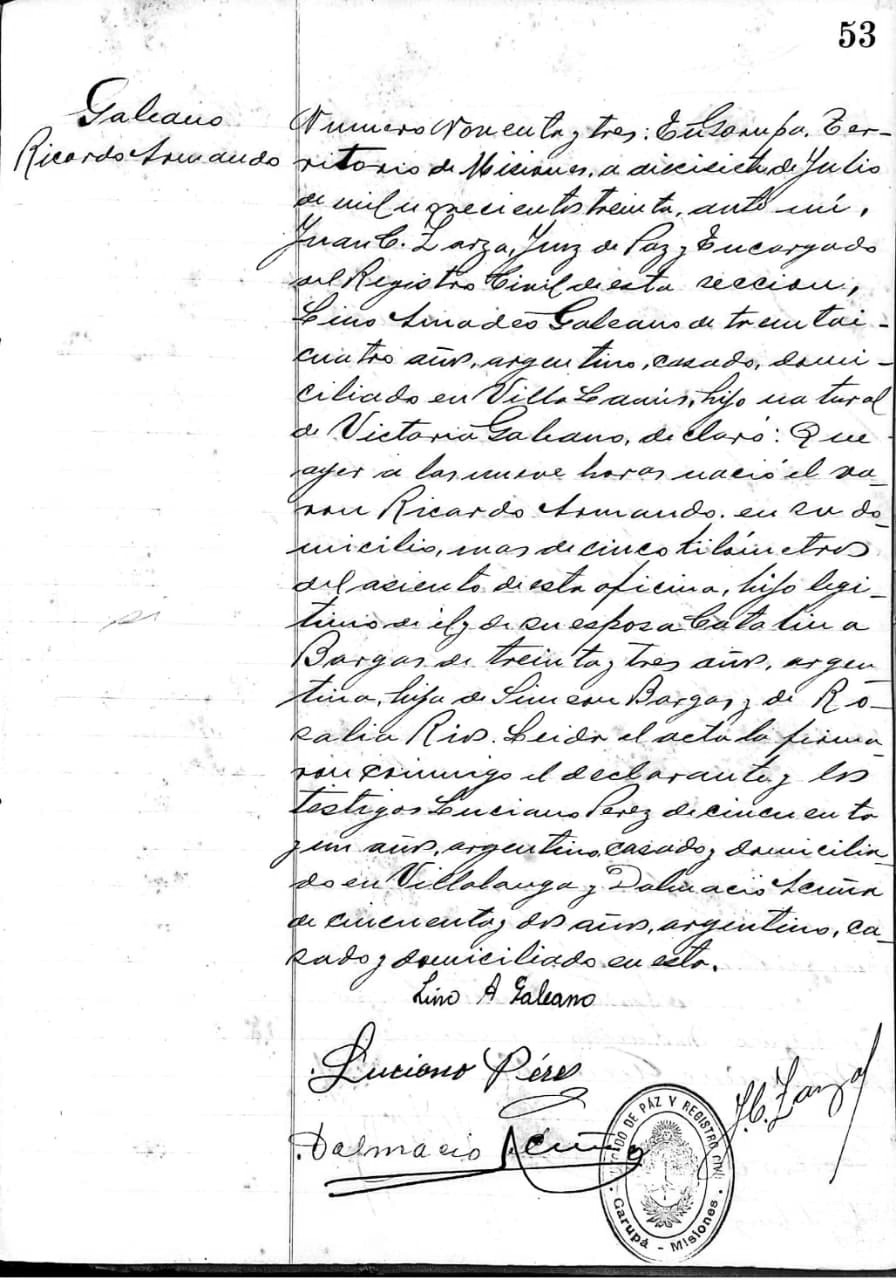 53
Galeano
Ricardo Armando
Numero Noventa y tres: En Garupa, Ter-
ritorio de Misiones, a diecisiete de Julio
de mil novecientos treinta, ante mi,
Juan C. Zarza, Juez de Paz y Encargado
del Registro Civil de esta seccion,
Lino Amadeo Galeano de treintai-
cuatro años, argentino, casado, domi-
ciliado en Villa Lanús, hijo natural
de Victoria Galeano, declaró: Que
ayer a las nueve horas nació el va-
ron Ricardo Armando, en su do-
micilio, mas de cinco kilómetros
del asiento de esta oficina, hijo legi-
timo de él y de su esposa Catalina
Bargas de treinta y tres años, argen
tina, hija de Simeon Bargas y de Ro-
salia Rios. Leida el acta la firma-
ron conmigo el declarante y los
testigos Luciano Perez de cincuenta
y un años, argentino, casado y domicilia-
do en Villalonga y Dalmacio Acuña
de cincuenta y dos años, argentino, ca-
sado y domiciliado en esta.
Lino A Galeano
Luciano Pérez
J. C. Zarza
Dalmacio Acuña
JUZGADO DE PAZ Y REGISTRO CIVIL
Garupá - Misiones